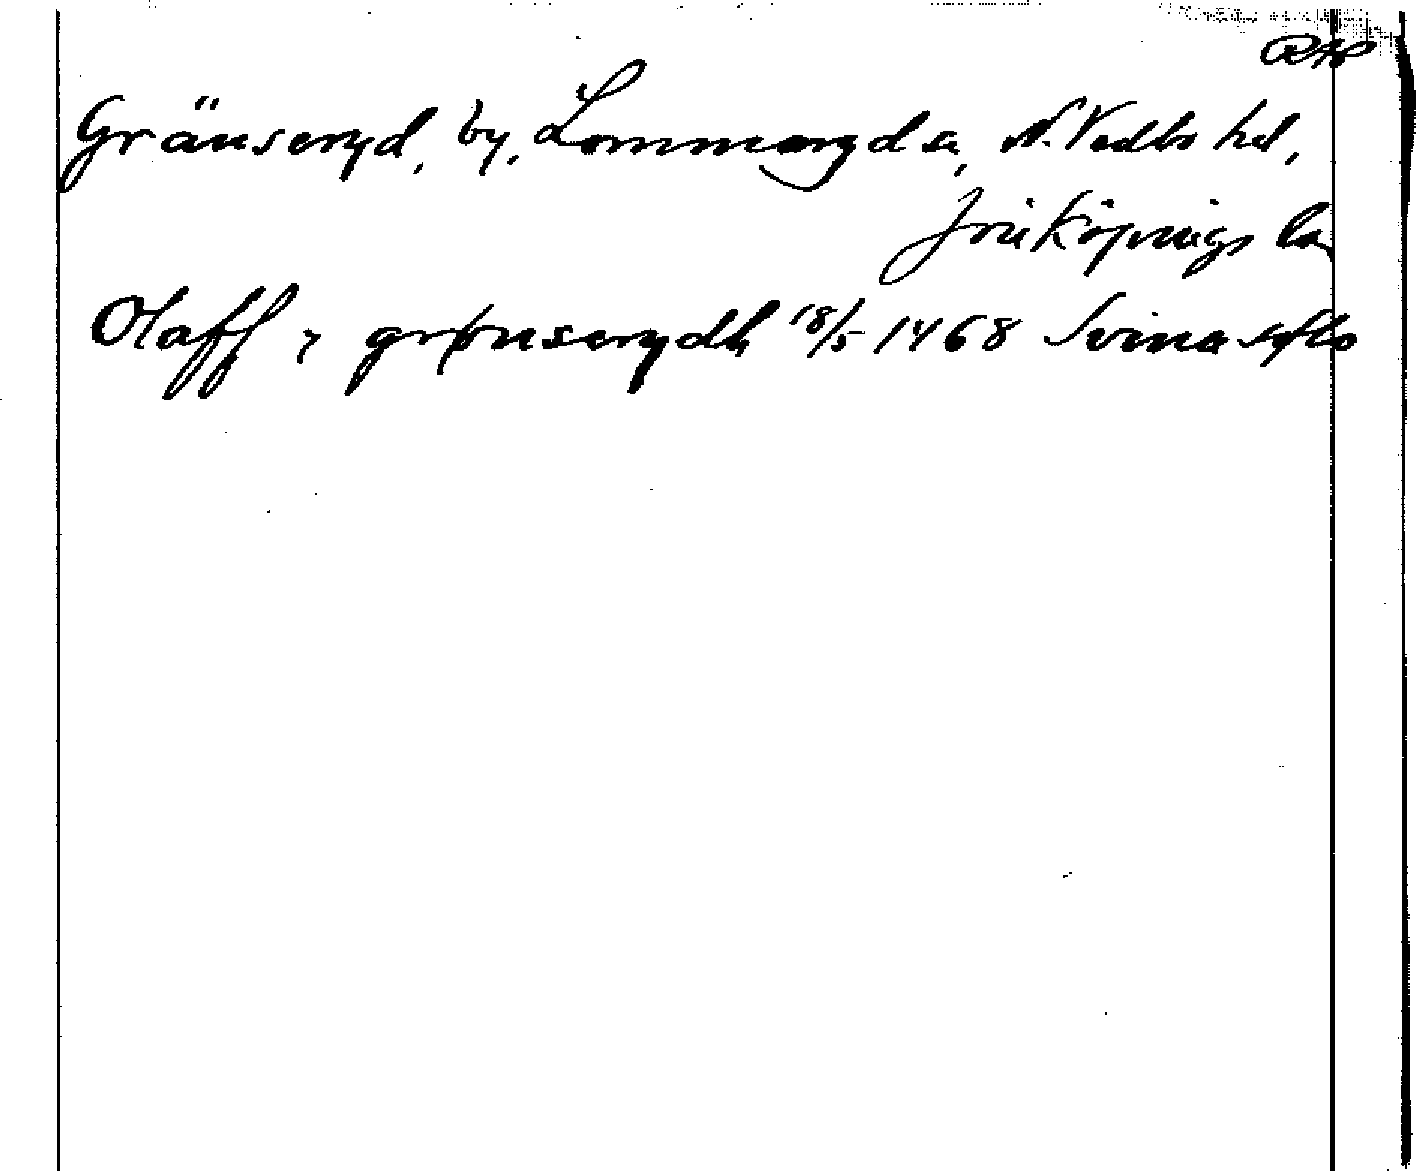 RAP
Gränseryd, by, Lommaryd sn, N. Vedbo hd,
Jönköpings län
Olaff i grønserydh 18/5 1468 Svinas